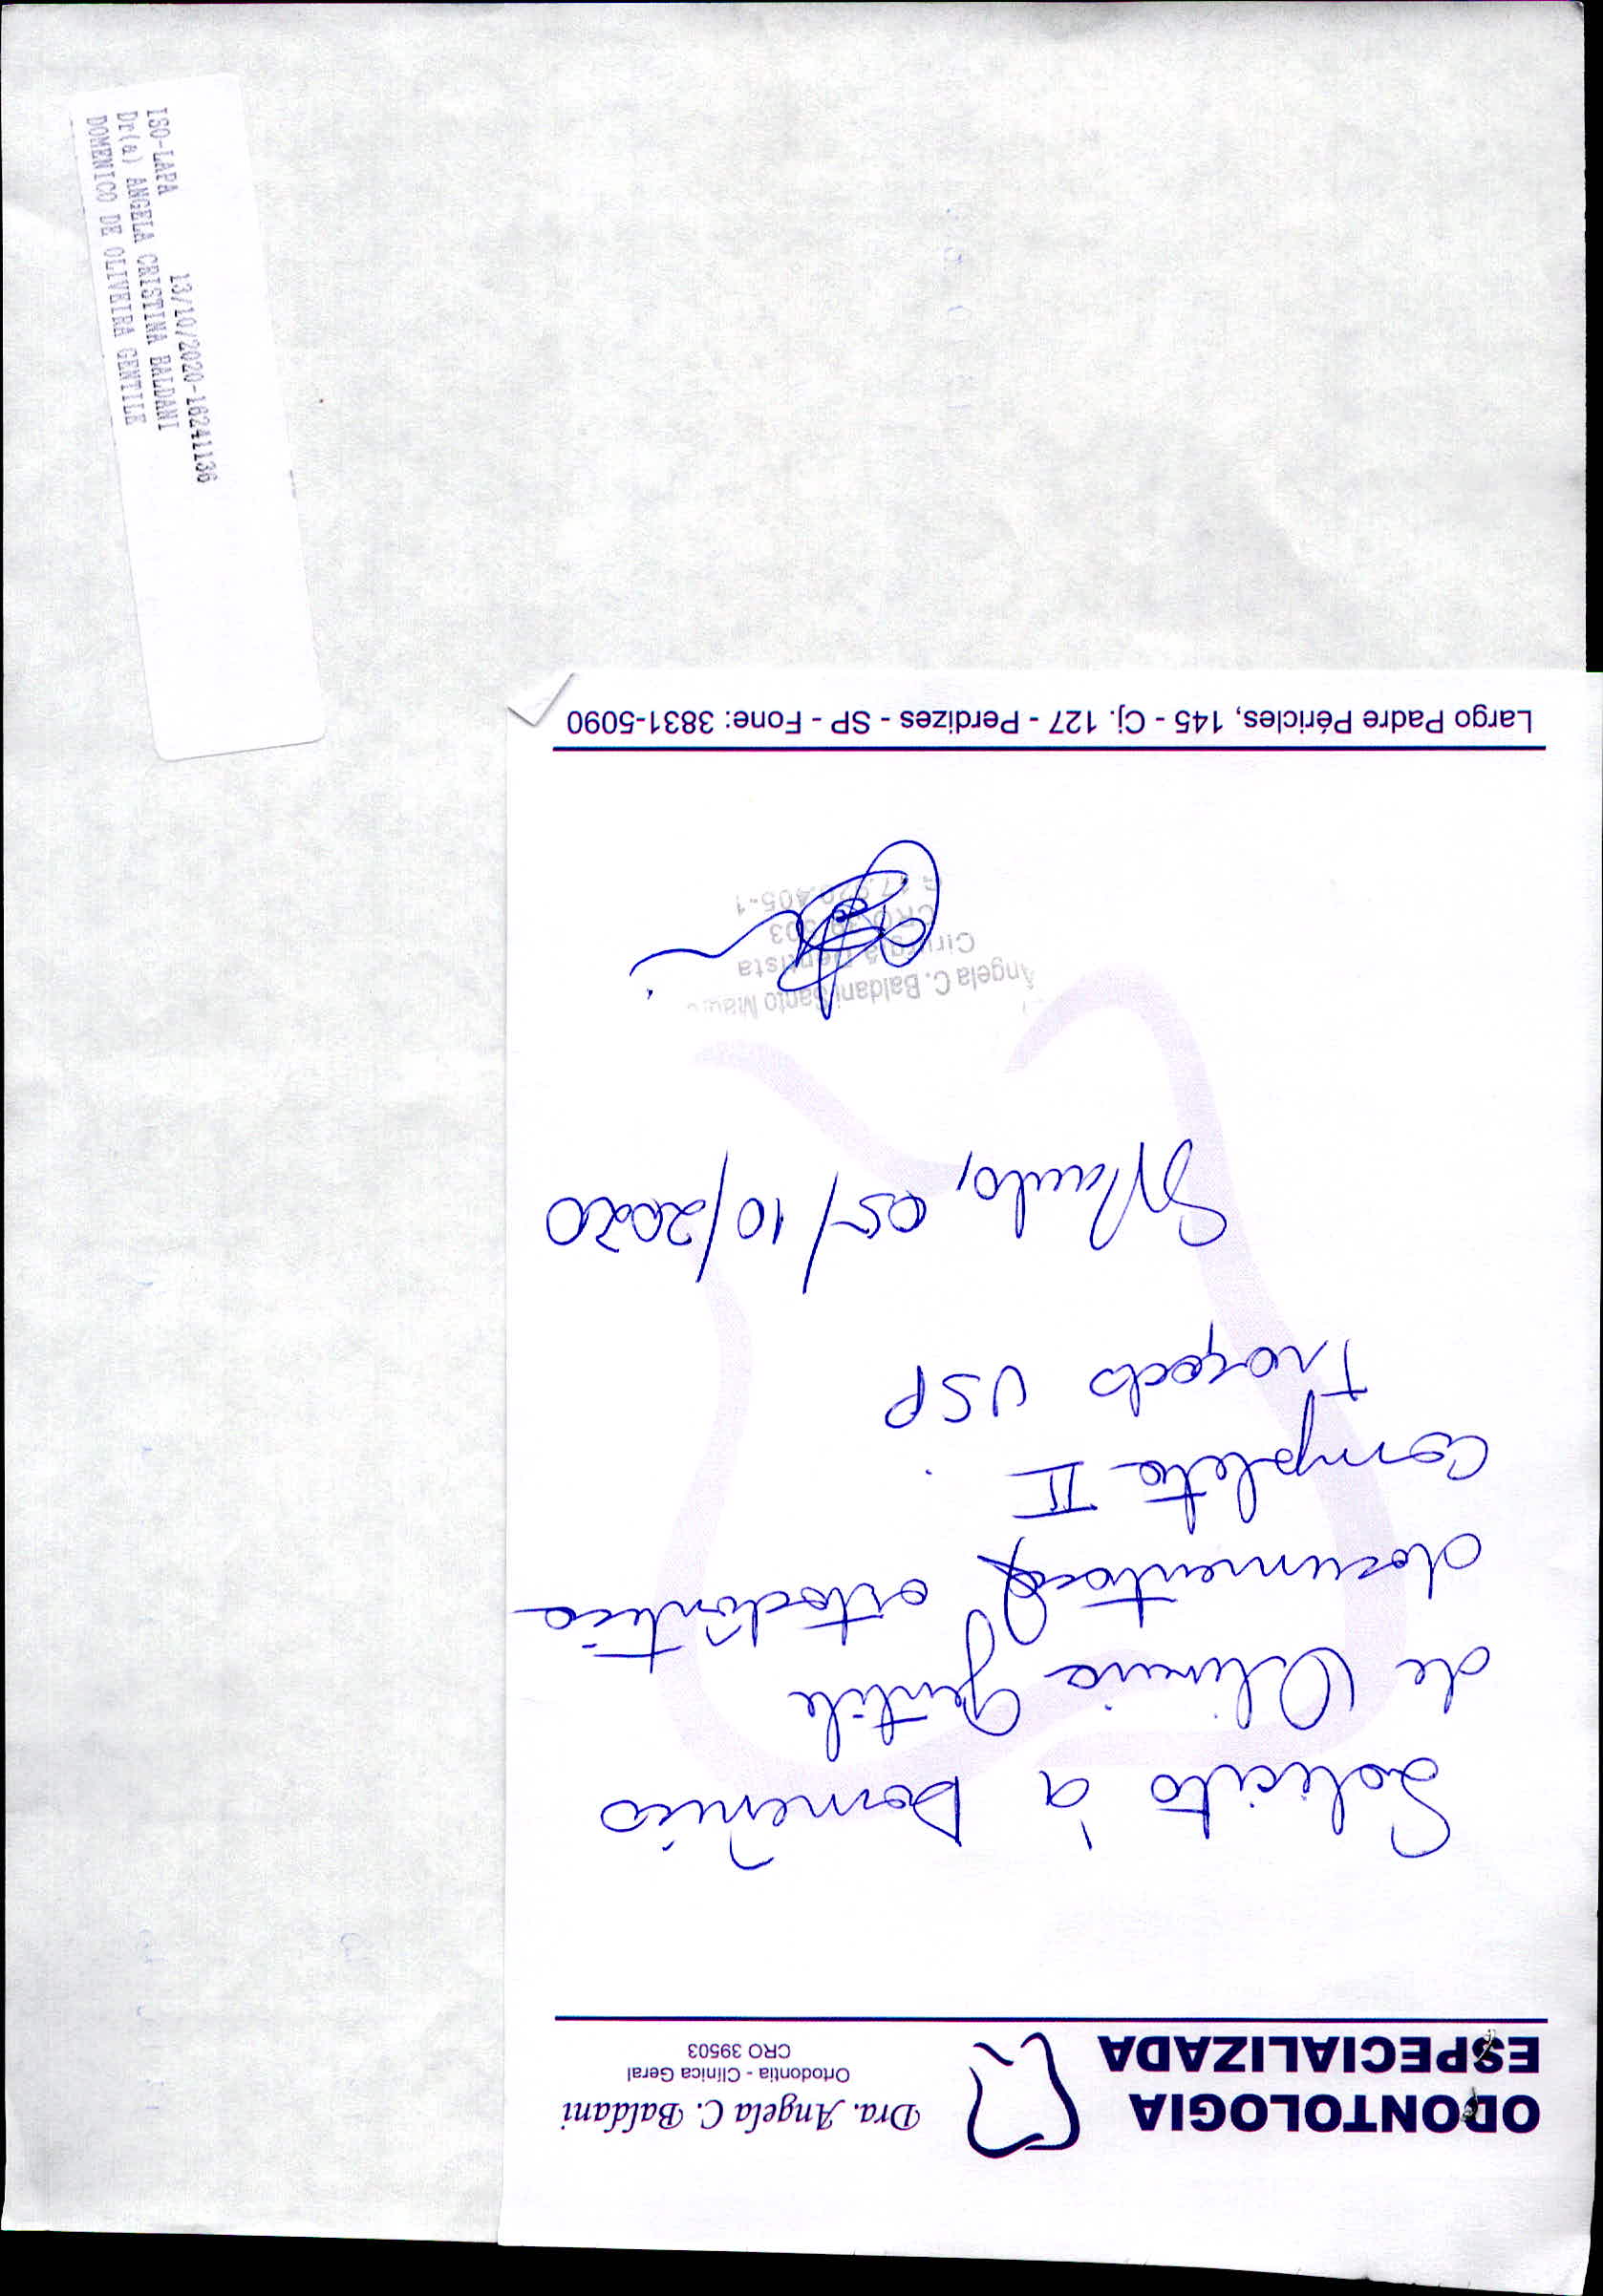 ODONTOLOGIA
ESPECIALIZADA
Dra. Angela C. Baldani
Ortodontia - Clínica Geral
CRO 39503
Solicito à Domenico
de Oliveira Gentile
documentação ortodôntica
completa II
Traçado USP
SPaulo, 05/10/2020
Angela C. Baldani Santo
Cirurgiã Dentista
CRO
Largo Padre Péricles, 145 - Cj. 127 - Perdizes - SP - Fone: 3831-5090
13/10/2020-16241136
ISO-LAPA
Dr(a) ANGELA CRISTINA BALDANI
DOMENICO DE OLIVEIRA GENTILE